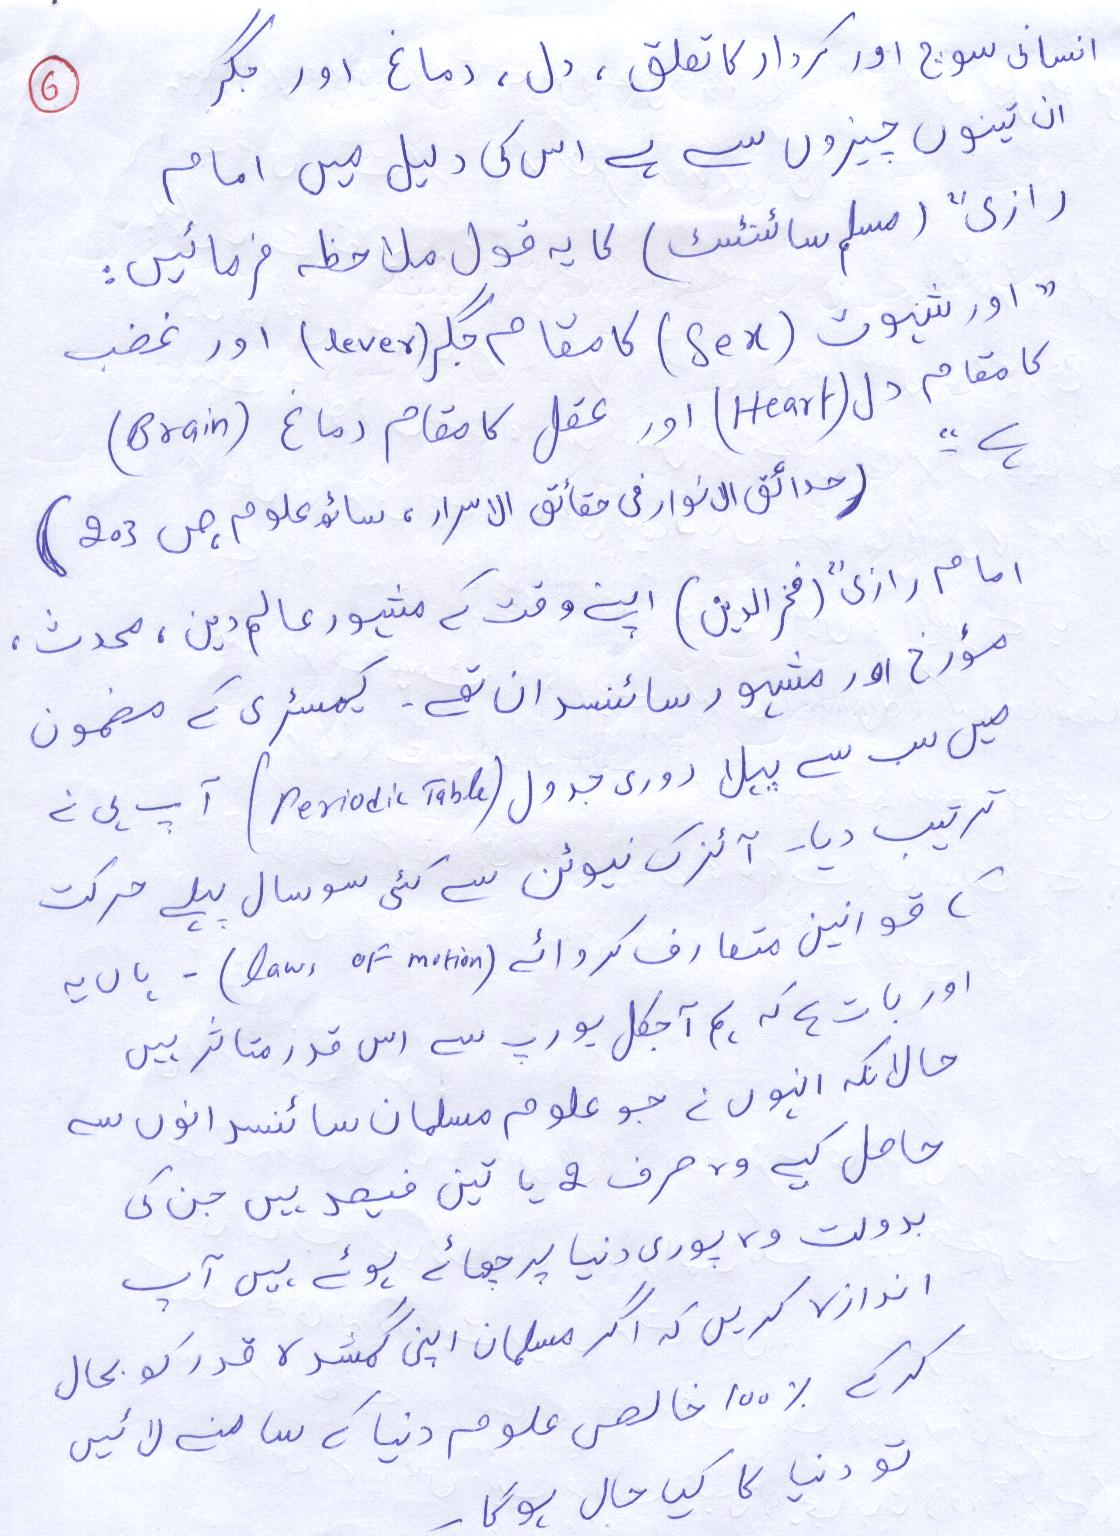 6
انسانی سوچ اور کردار کا تعلق، دل، دماغ اور جگر
ان تینوں چیزوں سے ہے اس کی دلیل میں امام
رازیؒ (مسلم سائنٹسٹ) کا یہ قول ملاحظہ فرمائیں:
"اور شہوت (Sex) کا مقام جگر (lever) اور غضب
کا مقام دل (Heart) اور عقل کا مقام دماغ (Brain)
ہے"
(حدائق الانوار فی حقائق الاسرار، ساٹھ علوم ص 203)
امام رازیؒ (فخرالدین) اپنے وقت کے مشہور عالم دین، محدث،
مؤرخ اور مشہور سائنسدان تھے۔ کیمسٹری کے مضمون
میں سب سے پہلا دوری جدول (Periodic Table) آپ ہی نے
ترتیب دیا۔ آئزک نیوٹن سے کئی سو سال پہلے حرکت
کے قوانین متعارف کروائے (Laws of motion)۔ ہاں یہ
اور بات ہے کہ ہم آجکل یورپ سے اس قدر متاثر ہیں
حالانکہ انہوں نے جو علوم مسلمان سائنسدانوں سے
حاصل کیے وہ صرف 2 یا تین فیصد ہیں جن کی
بدولت وہ پوری دنیا پر چھائے ہوئے ہیں آپ
اندازہ کریں کہ اگر مسلمان اپنی گمشدہ قدر کو بحال
کرکے 100% خالص علوم دنیا کے سامنے لائیں
تو دنیا کا کیا حال ہوگا۔